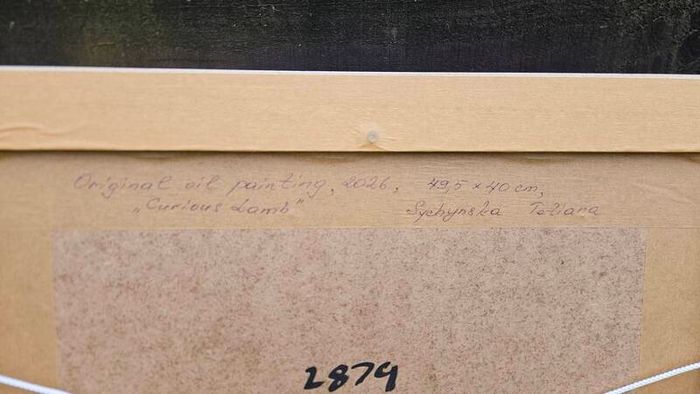 Original oil painting, 2026, 49,5 × 40 cm,
„Curious Lamb" Sychynska Tetiana
2879